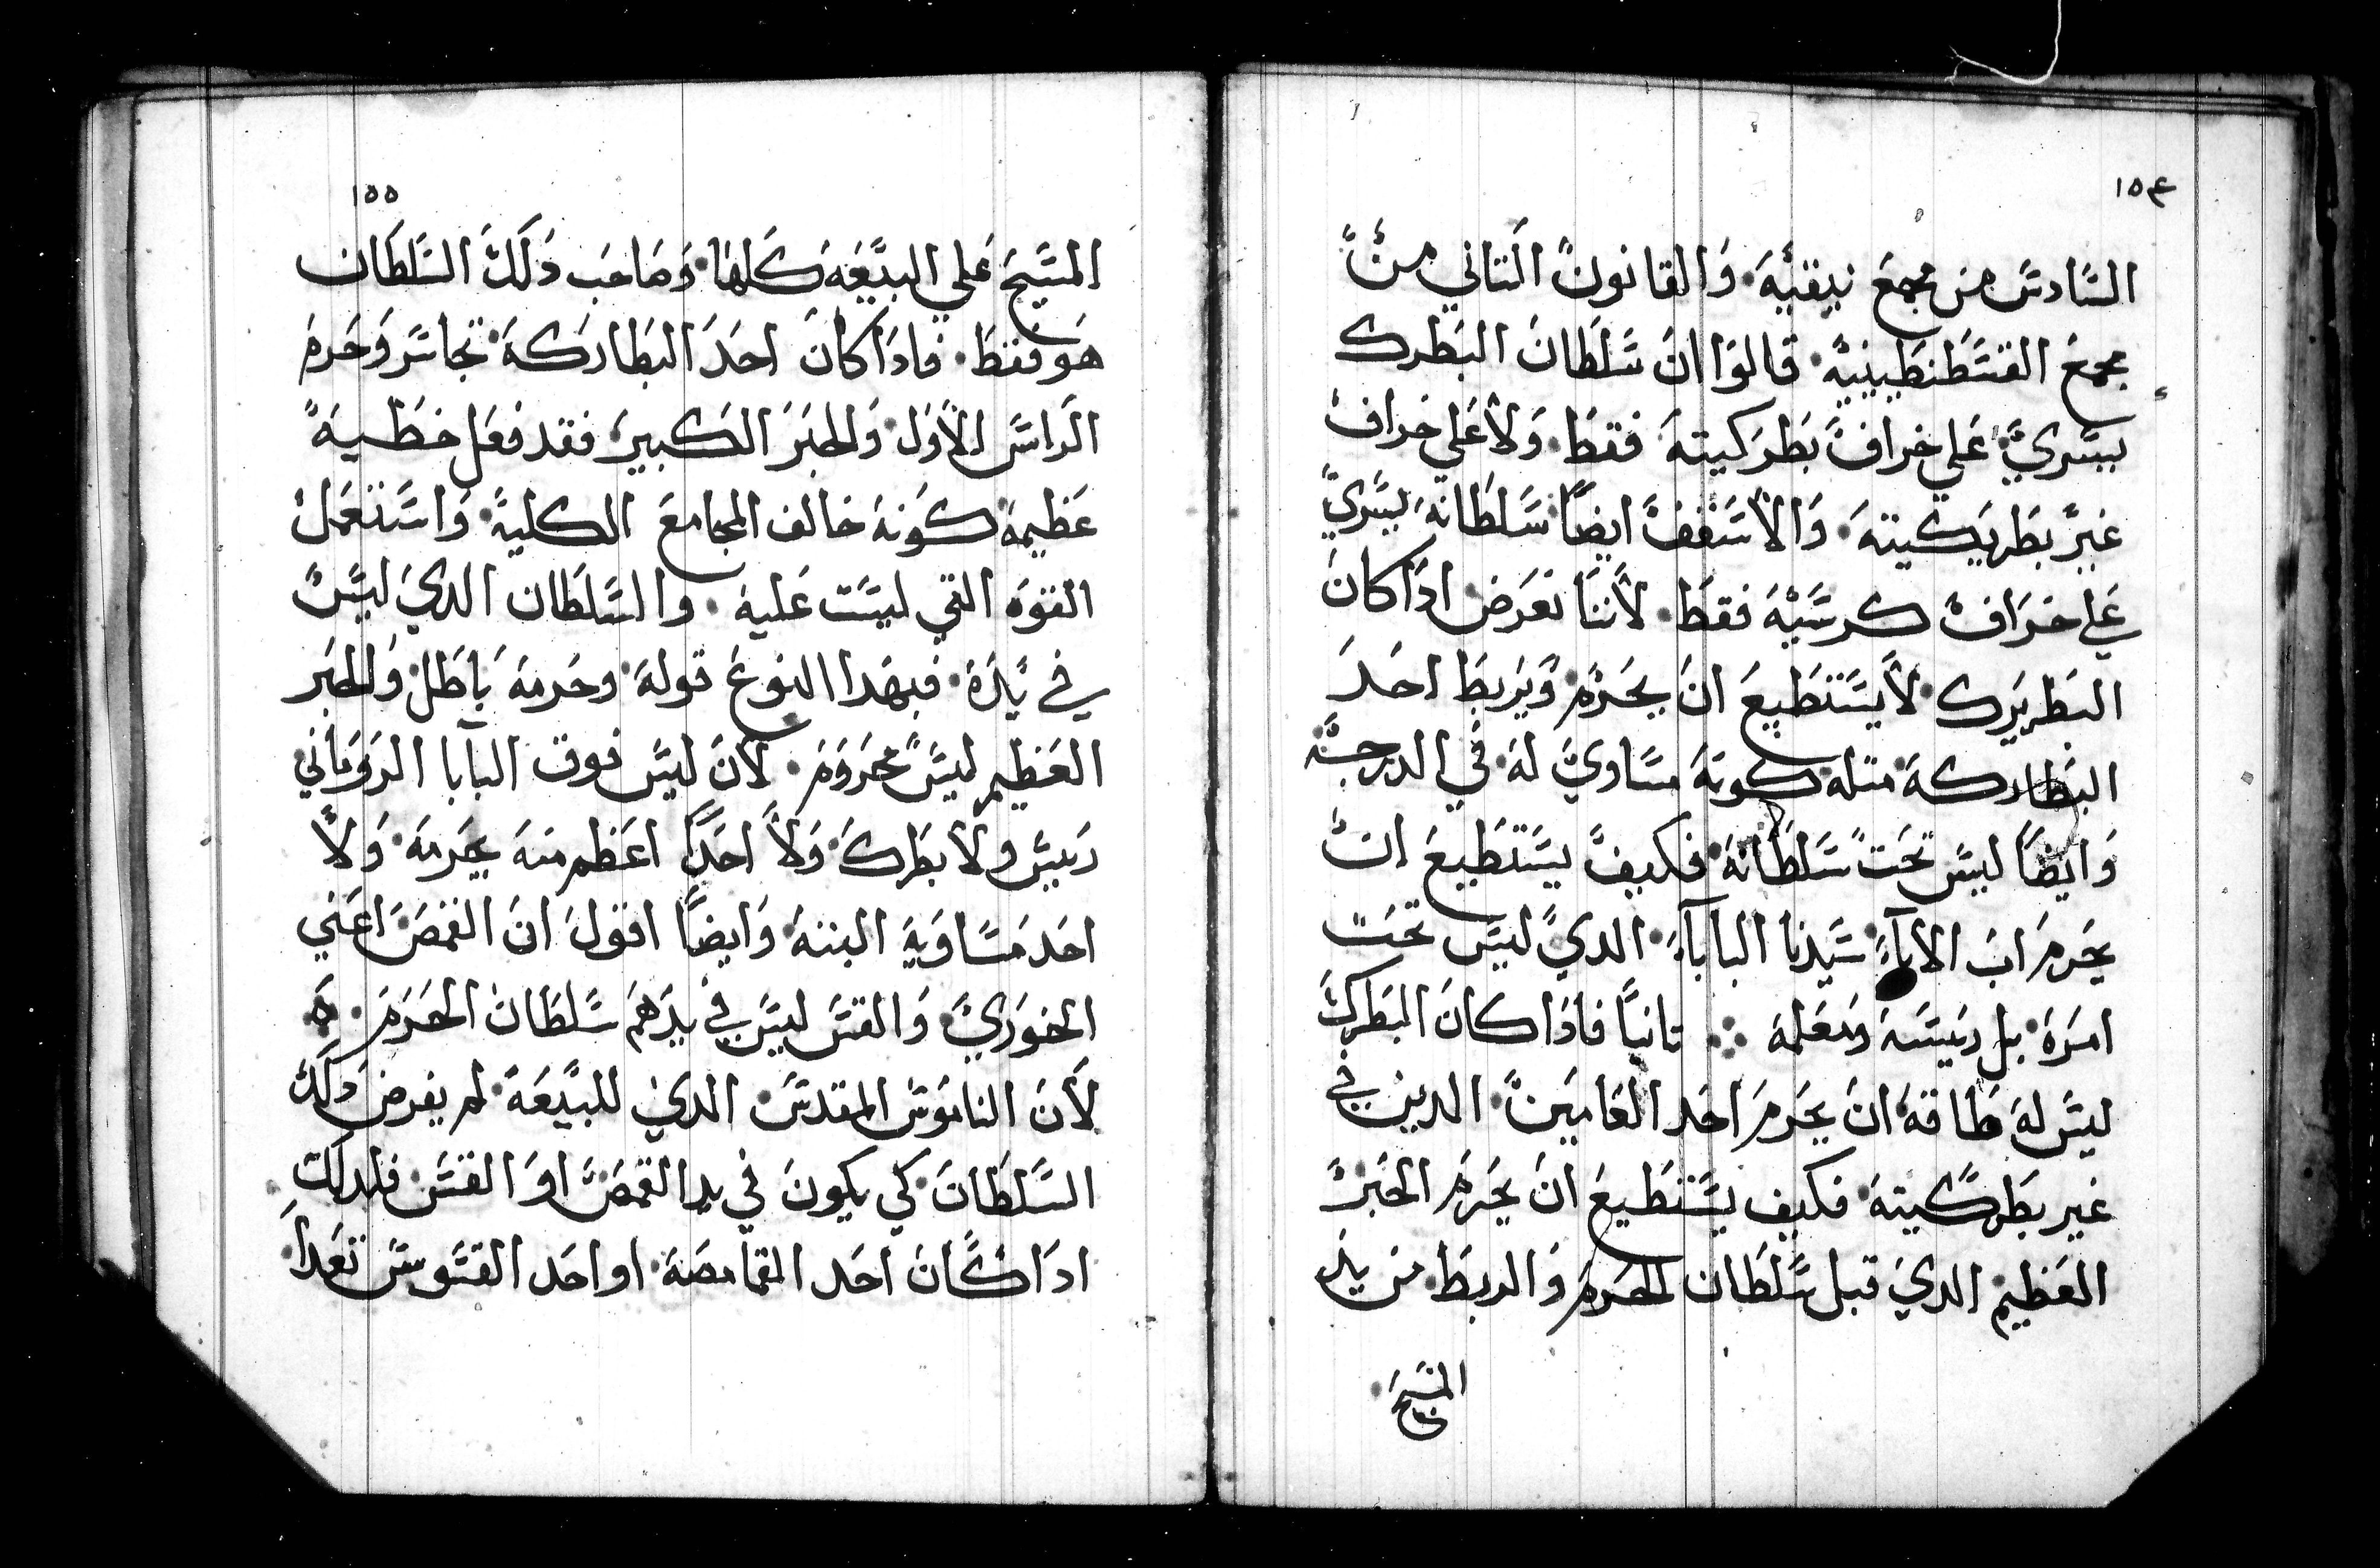 ١٥٤
السادس من مجمع نيقية. والقانون التاني من
مجمع القسطنطينية. قالوا ان سلطان البطرك
يسري علي خراف بطركيته فقط. ولا علي خراف
غير بطريكيته. والاسقف ايضاً سلطانه يسري
علي خراف كرسيه فقط. لاننا نعرض اداكان
البطريرك لايستطيع ان يحرم ويربط احد
البطاركة متله كونه مساوي له في الدرجة
وايضاً ليس تحت سلطانه فكيف يستطيع ان
يحرم اب الاباء سيدنا الباباء الدي ليس تحت
امره بل رييسه ومعلمه ∴ تانياً فادا كان البطرك
ليس له طاقه ان يحرم احد العاميين الدين في
غير بطركيته فكيف يستطيع ان يحرم الحبر
العظيم الدي قبل سلطان الحرم والربط من يد
المسيح
١٥٥
المسيح علي البيعه كلها وصاحب دلك السلطان
هو فقط. فاداكان احد البطاركة تجاسر وحرم
الراس الاول والحبر الكبير فقد فعل خطية
عظيمة كونه خالف المجامع الكلية واستعمل
القوه التي ليست عليه. والسلطان الدي ليس
في يده. فبهدا النوع قوله وحرمه باطل والحبر
العظيم ليس محروم. لان ليس فوق البابا الروماني
رييس ولا بطرك ولا احداً اعظم منه يحرمه ولا
احد مساويه البته وايضاً اقول ان القمص اعني
الخوري والقس ليس في يدهم سلطان الحرم.
لان الناموس المقدس الدي للبيعة لم يفرض دلك
السلطان كي يكون في يد القمص او القس فلدلك
اداكان احد القمامصة او احد القسوس تعدا